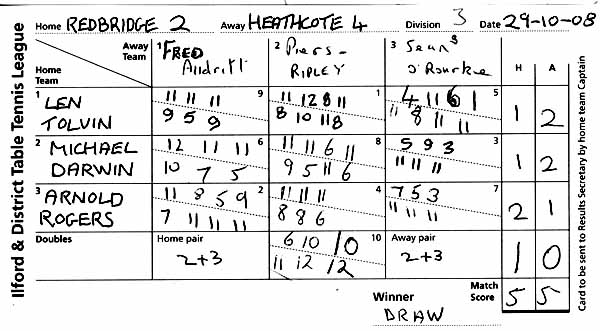 Ilford & District Table Tennis League
Home REDBRIDGE 2 Away HEATHCOTE 4 Division 3 Date 29-10-08
Away Team
Home Team
1 FRED Alldritt
2 Piers RIPLEY
3 Sean O'Rourke
H A
1 LEN TOLVIN
9
11 11 11
9 5 9
1
11 12 8 11
8 10 11 8
5
4 11 6 1
11 8 11 11
1 2
2 MICHAEL DARWIN
6
12 11 11
10 7 5
8
11 11 6 11
9 5 11 6
3
5 9 3
11 11 11
1 2
3 ARNOLD ROGERS
2
11 8 5 9
7 11 11 11
4
11 11 11
8 8 6
7
7 5 3
11 11 11
2 1
Doubles
Home pair
2+3
10
6 10 10
11 12 12
Away pair
2+3
1 0
Winner
DRAW
Match Score
5 5
Card to be sent to Results Secretary by home team Captain